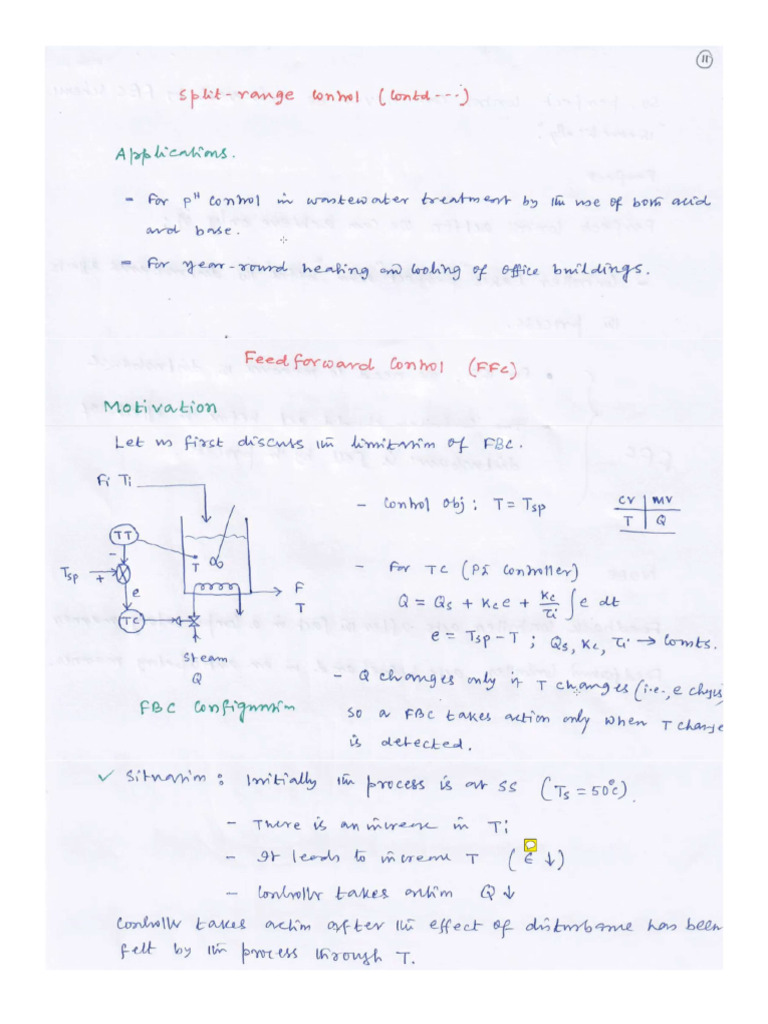 11
Split-range Control (Contd----)
Applications.
- For pH control in wastewater treatment by the use of both acid
and base.
- For year-round heating and cooling of office buildings.
Feedforward Control (FFC)
Motivation
Let us first discuss the limitation of FBC.
Fi Ti
- Control obj: T = Tsp
CV | MV
T | Q
TT
T
Tsp + -
e
TC
F
T
Steam
Q
FBC Configuration
- For TC (PI Controller)
Q = Qs + Kc e + Kc/τi ∫ e dt
e = Tsp - T ; Qs, Kc, τi → Consts.
- Q changes only if T changes (i.e., e chges)
so a FBC takes action only when T change
is detected.
✓ Situation : Initially the process is at SS (Ts = 50°C).
- There is an increase in Ti
- It leads to increase T (e ↓)
- Controller takes action Q ↓
Controller takes action after the effect of disturbance has been
felt by the process through T.